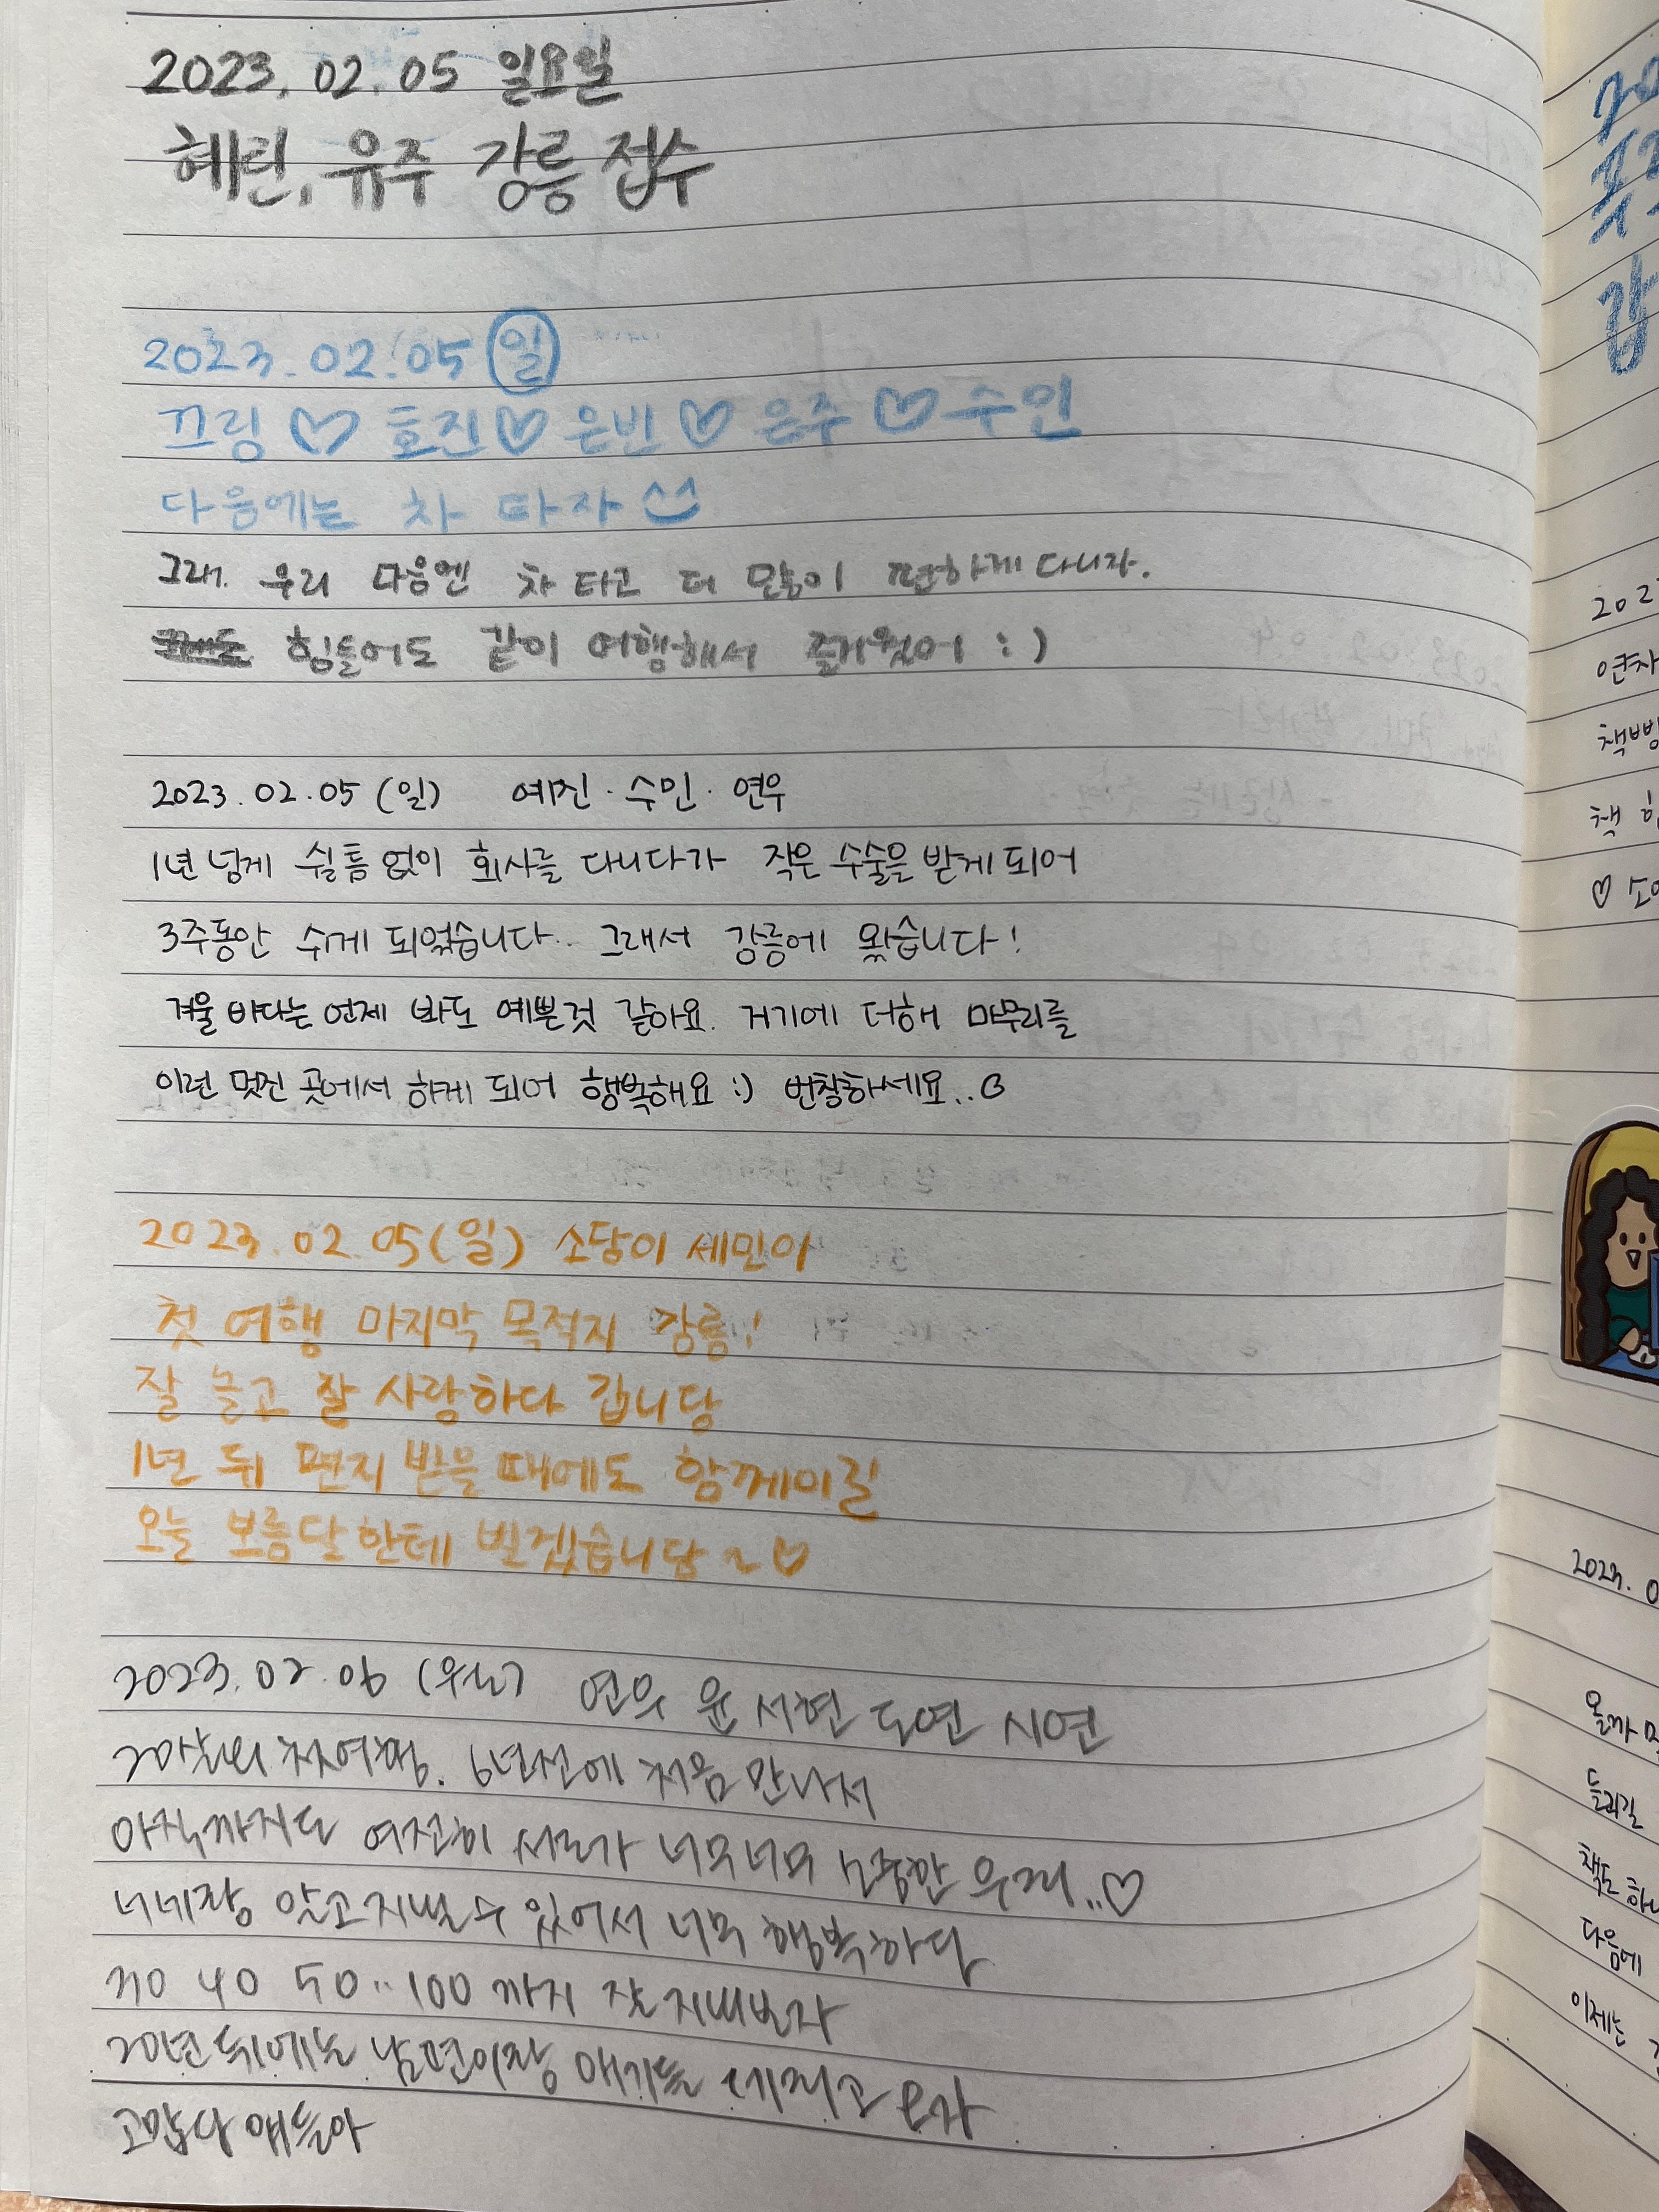 2023. 02. 05 일요일
혜린, 유주 강릉 접수
2023. 02. 05 일
끄링 ♡ 호진 ♡ 은빈 ♡ 은주 ♡ 수인
다음에는 차 타자 ^^
그래. 우리 다음엔 차 타고 더 많이 편하게 다니자.
힘들어도 같이 여행해서 즐거웠어 : )
2023. 02. 05 (일) 예진 · 수민 · 연우
1년 넘게 쉴틈없이 회사를 다니다가 작은 수술을 받게 되어
3주동안 쉬게 되었습니다.. 그래서 강릉에 왔습니다!
겨울 바다는 언제 봐도 예쁜것 같아요. 거기에 더해 마무리를
이런 멋진 곳에서 하게 되어 행복해요 :) 번창하세요..♡
2023. 02. 05 (일) 소당이 세민이
첫 여행 마지막 목적지 강릉!
잘 놀고 잘 사랑하다 갑니당
1년 뒤 편지 받을 때에도 함께이길
오늘 보름달한테 빌겠습니당 ~ ♡
2023. 02. 06 (월) 연우 윤 서현 도연 시연
20살의 첫여행. 6년전에 처음 만나서
아직까지도 여전히 서로가 너무너무 소중한 우리..♡
너네랑 알고지낼 수 있어서 너무 행복하다
30 40 50..100까지 잘 지내보자
20년 뒤에는 남편이랑 애기들 데리고 오자
고맙다 얘들아
202
연차
책빵
책
♡
2023. 0
올까
들리길
책도 하나
다음에
이제는